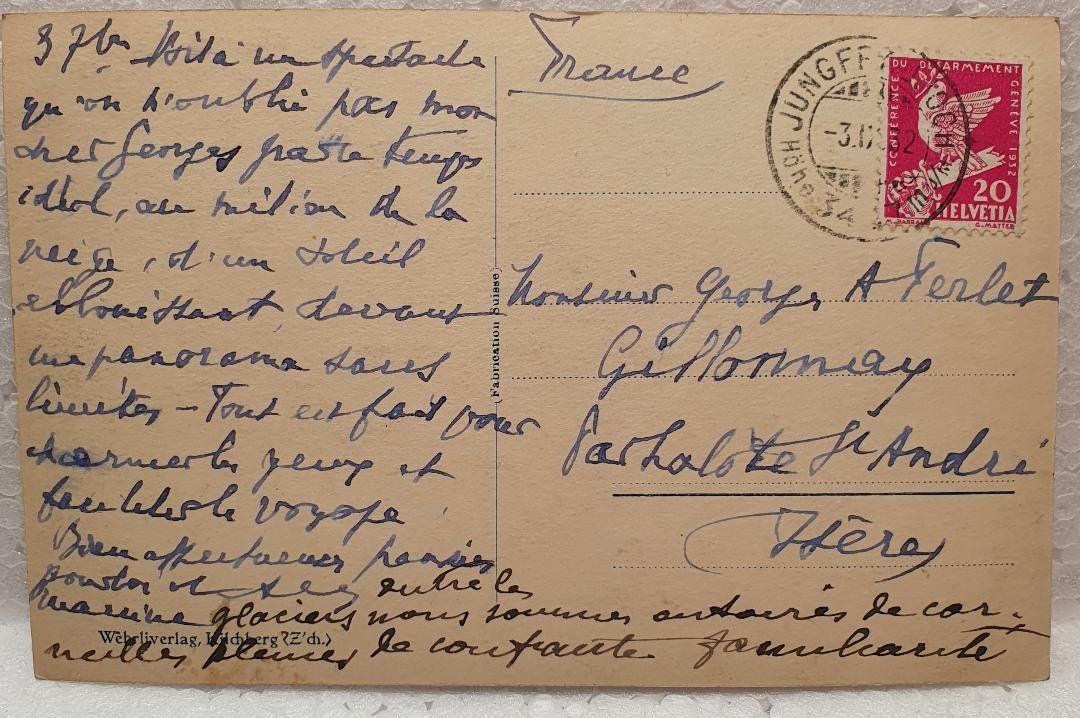 3 7bre Voilà un spectacle
qu'on n'oublie pas mon
cher Georges par ce temps
idéal, au milieu de la
neige, d'un soleil
eblouissant, devant
un panorama sans
limites – Tout est fait pour
charmer les yeux et
faciliter le voyage.
Bien affectueuses pensées
pour toi et
mamine entre les
glaciers nous sommes entourés de cor-
neilles pleines de confiante familiarité
Wehrliverlag, Kilchberg (Z'ch.)
(Fabrication Suisse)
France
JUNGFRAUJOCH
-3.IX.32
CONFÉRENCE DU DÉSARMEMENT GENÈVE 1932
20
HELVETIA
M. BARRAUD
G. MATTER
Monsieur Georges A Ferlet
Gillonnay
Par La Côte St André
Isère